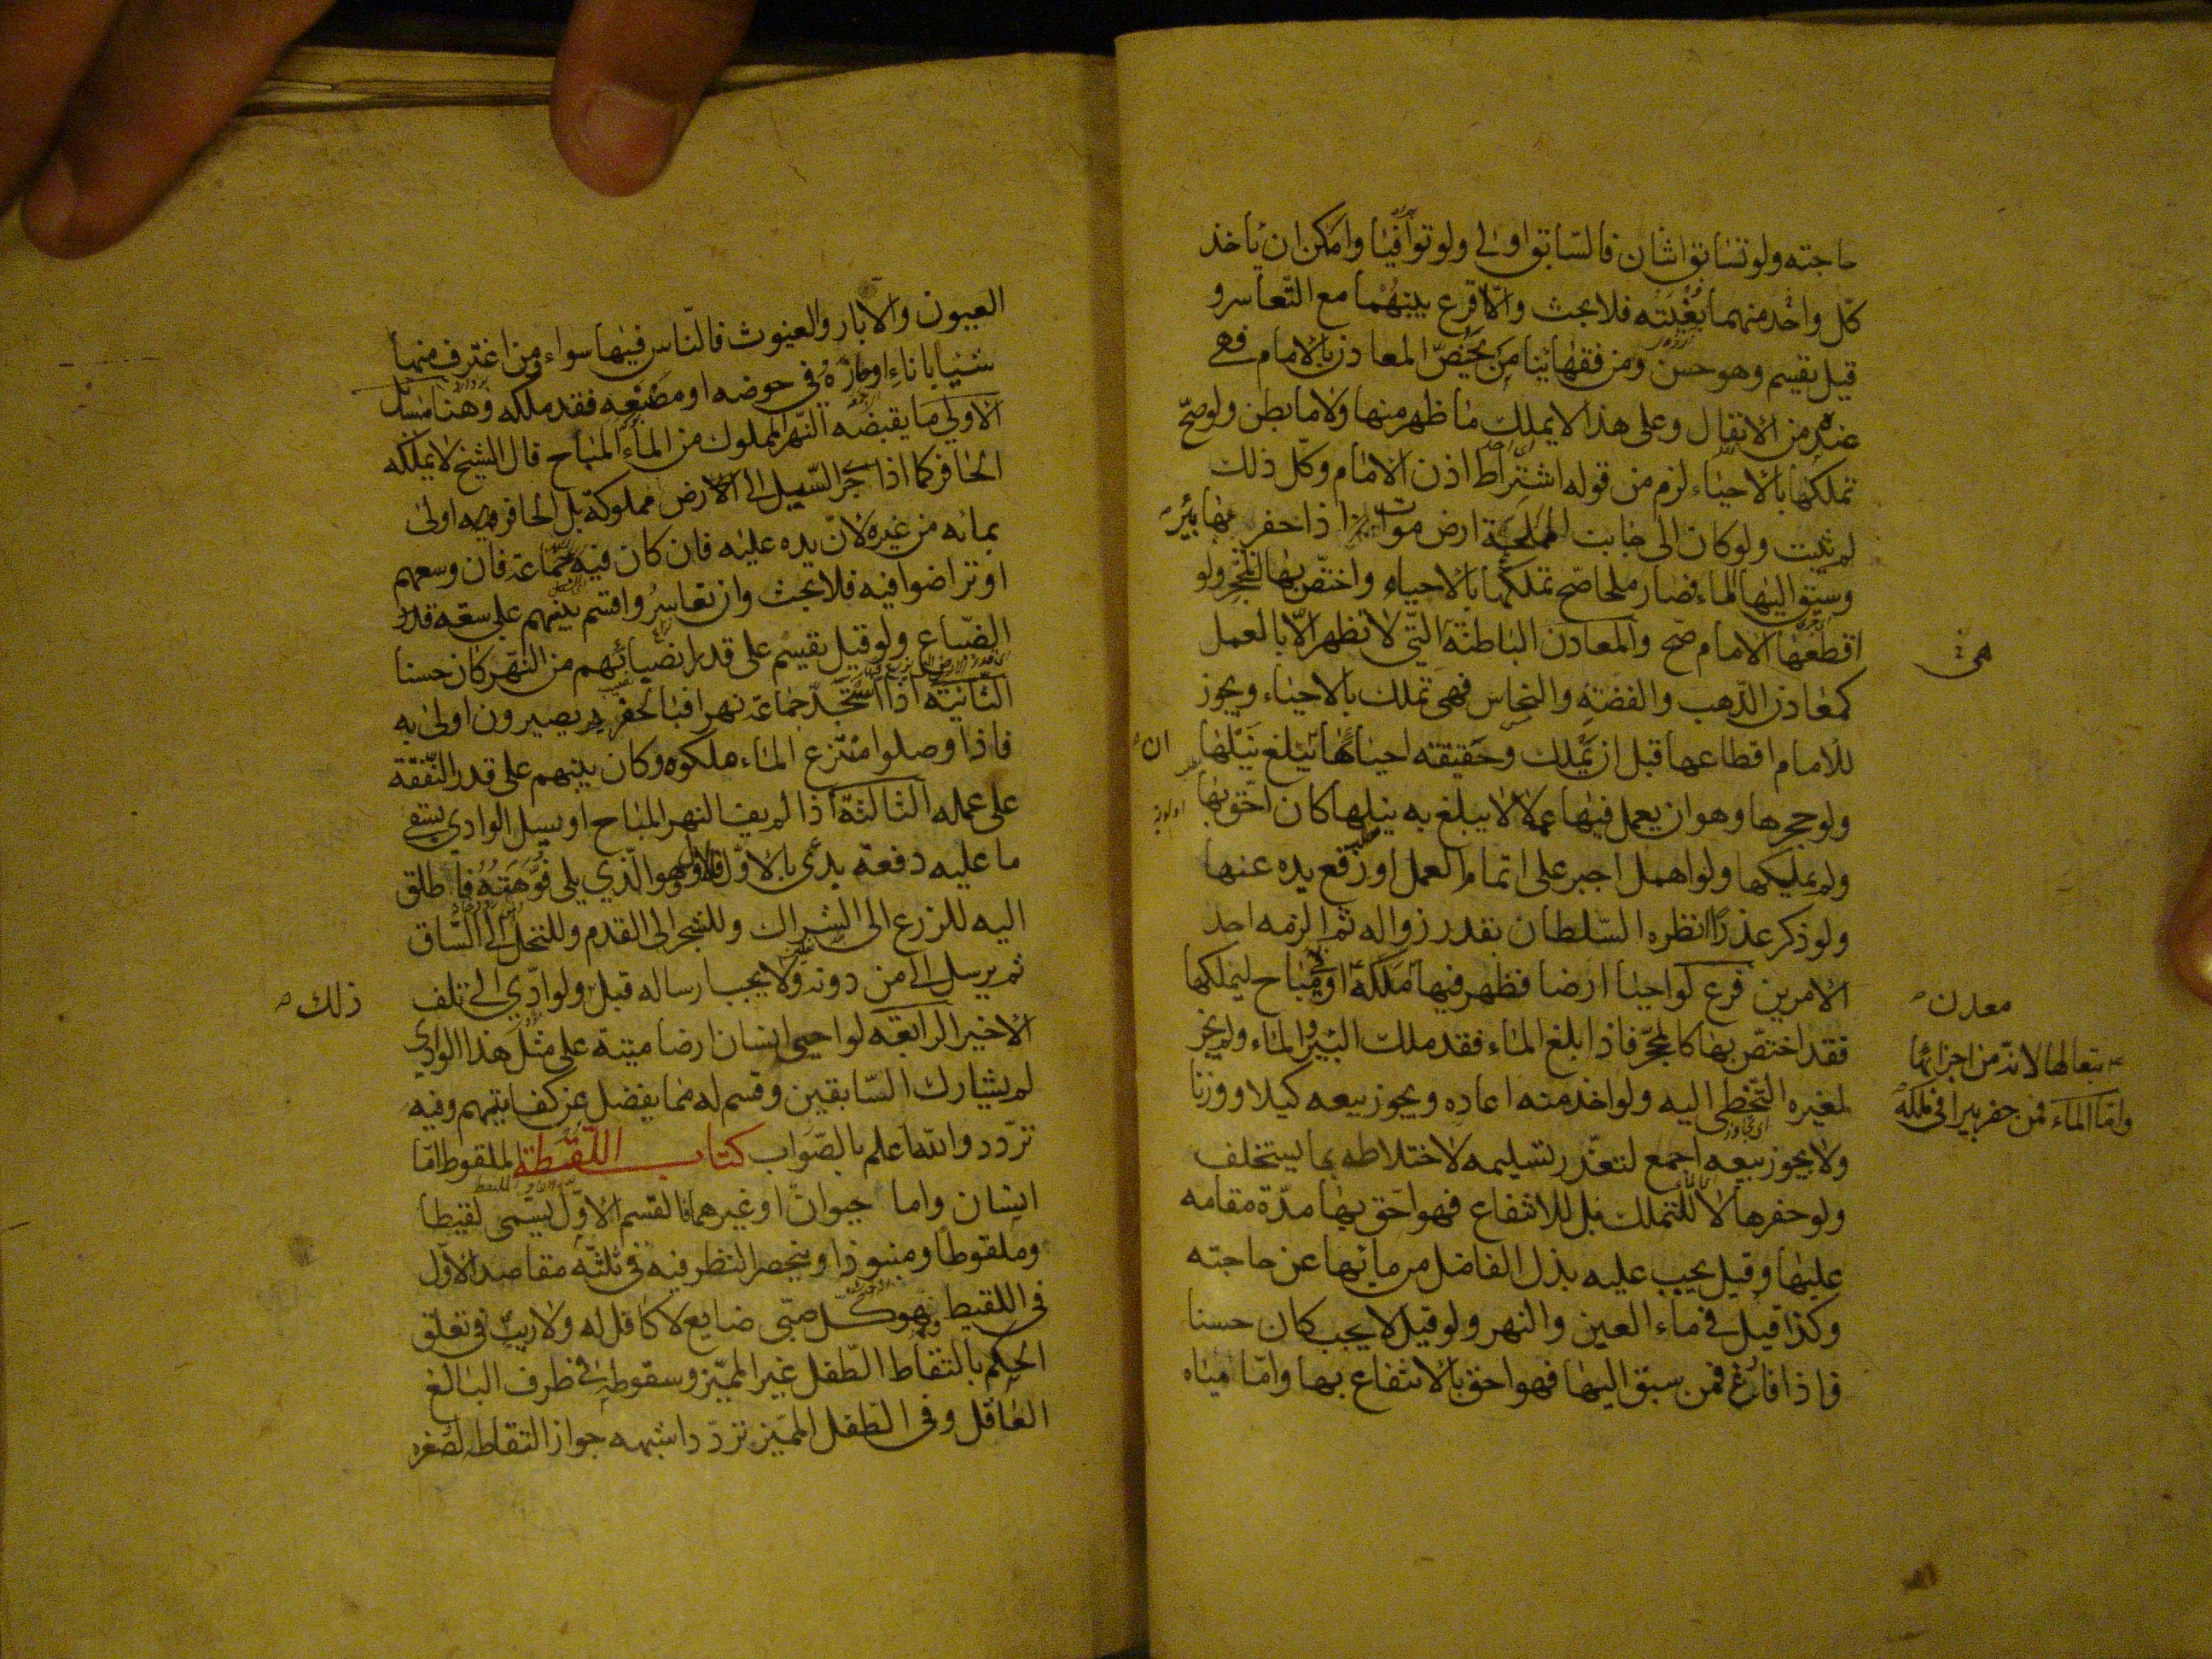 حاجته ولو تسابق اثنان فالسّابق اولى ولو توافيا وامكن ان ياخذ
كلّ واحد منهما بغيته فلا بحث والّا اقرع بينهما مع التّعاسر و
قيل يقسم وهو حسن ومن فقهائنا من يخصّ المعادن بالامام فهى
عنده من الانفال وعلى هذا لا يملك ما ظهر منها ولا ما بطن ولو صحّ
تملكها بالاحياء لزم من قوله اشتراط اذن الامام وكلّ ذلك
لم يثبت ولو كان الى جانب المملحة ارض موات اذا حفر بها بئر
وسيق اليها الماء فصار ملحا صح تملكها بالاحياء واختصّ بها المحجر ولو
اقطعها الامام صحّ والمعادن الباطنة الّتي لا تظهر الّا بالعمل
هى
كمعادن الذّهب والفضة والنحاس فهى تملك بالاحياء ويجوز
للامام اقطاعها قبل ان يملك وحقيقة احيائها ان يبلغ نيلها
ولو حجرها وهو ان يعمل فيها عملا لا يبلغ به نيلها كان احق بها
ولم يملكها ولو اهمل اجبر على اتمام العمل او رفع يده عنها
ولو ذكر عذرا انظره السّلطان بقدر زواله ثم الزمه احد
الامرين فرع لو احيا ارضا فظهر فيها معدن ملكه
تبعا لها لانه من اجزائها
وامّا الماء فمن حفر بيرا فى ملكه او فى مباح ليملكها
فقد اختصّ بها كالمحجر فاذا بلغ الماء فقد ملك البئر والماء ولم يجز
لغيره التّخطى اليه ولو اخذ منه اعاده ويجوز بيعه كيلا ووزنا
ولا يجوز بيعه اجمع لتعذّر تسليمه لاختلاطه بما يستخلف
ولو حفرها لا للتملك بل للانتفاع فهو احق بها مدّة مقامه
عليها وقيل يجب عليه بذل الفاضل من مائها عن حاجته
وكذا قيل في ماء العين والنهر ولو قيل لا يجب كان حسنا
واذا فارغ فمن سبق اليها فهو احق بالانتفاع بها وامّا مياه
العيون والابار والغيوث فالنّاس فيها سواء ومن اغترف منها
شيئا باناء او حازه في حوضه او مصنعه فقد ملكه وهنا مسائل
الاولى ما يقبضه النّهر المملوك من الماء المباح قال الشيخ لا يملكه
الحافر كما اذا جرى السّيل الى الارض مملوكة بل الحافر اولى
بمائه من غيره لانّ يده عليه فان كان فيه جماعة فان وسعهم
او تراضوا فيه فلا بحث وان تعاسروا قسم بينهم على سعة قدر
الضّياع ولو قيل يقسم على قدر انصبائهم من النّهر كان حسنا
الثّانية اذا استجدّ جماعة نهرا فبالحفر يصيرون اولى به
فاذا وصلوا منتزع الماء ملكوه وكان بينهم على قدر النّفقة
على عمله الثالثة اذا لم يف النهر المباح او سيل الوادي بسقي
ما عليه دفعة بدئ بالاوّل فالاول وهو الّذي يلي فوّهته فاطلق
اليه للزرع الى الشراك وللشجر الى القدم وللنخل الى السّاق
ثم يرسل الى من دونه ولا يجب ارساله قبل ذلك ولو ادّي الى تلف
الاخير الرابعة لو احيى انسان ارضا ميتة على مثل هذا الوادي
لم يشارك السّابقين وقسم له مما يفضل عن كفايتهم وفيه
تردد والله اعلم بالصّواب كتاب اللقطة الملقوط امّا
انسان واما حيوان او غيرهما فالقسم الاوّل يسمّى لقيطا
وملقوطا ومنبوذا وينحصر النظر فيه فى ثلثة مقاصد الاوّل
فى اللقيط وهو كل صبّى ضايع لا كافل له ولا ريب في تعلق
الحكم بالتقاط الطّفل غير المميّز وسقوطه في ظرف البالغ
العاقل وفى الطفل المميّز تردد اشبهه جواز التقاطه لصغره